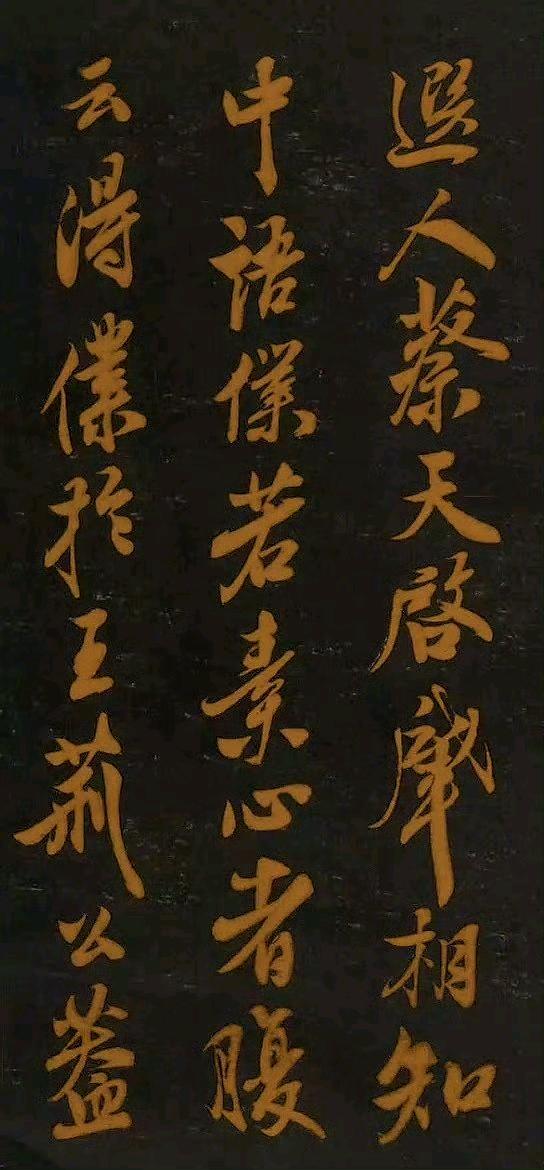 人蔡天啓肇相知
中語僕若素心者腹
云得僕於王荊公蓋